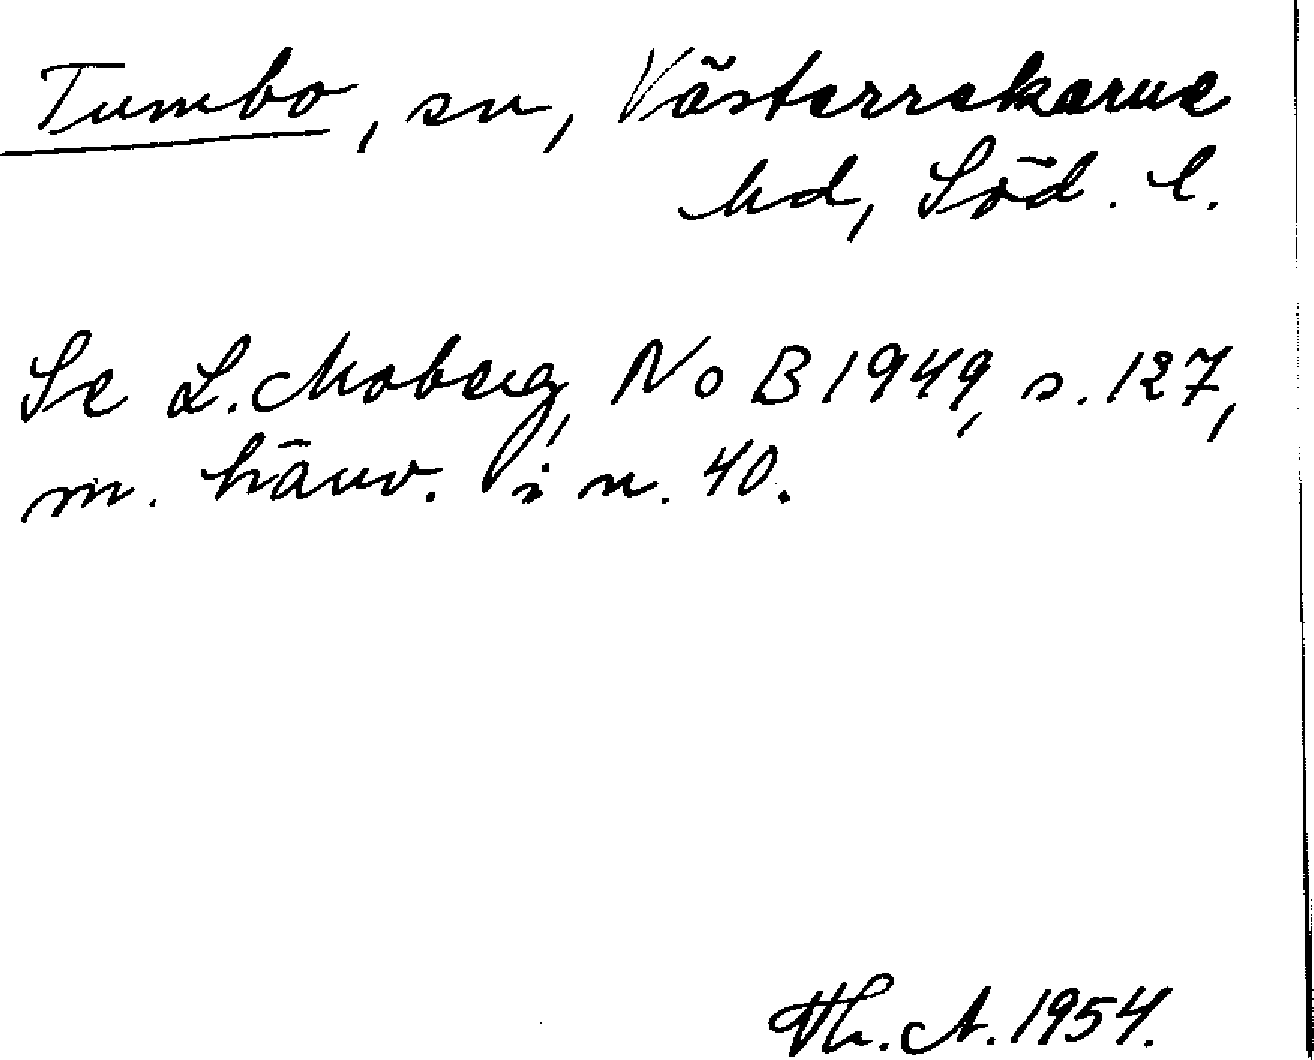 Tumbo, sn, Västerrekarne
hd, Söd. l.
Se L. Moberg, NoB 1949, s. 127,
m. hänv. i n. 40.
Th. A. 1954.